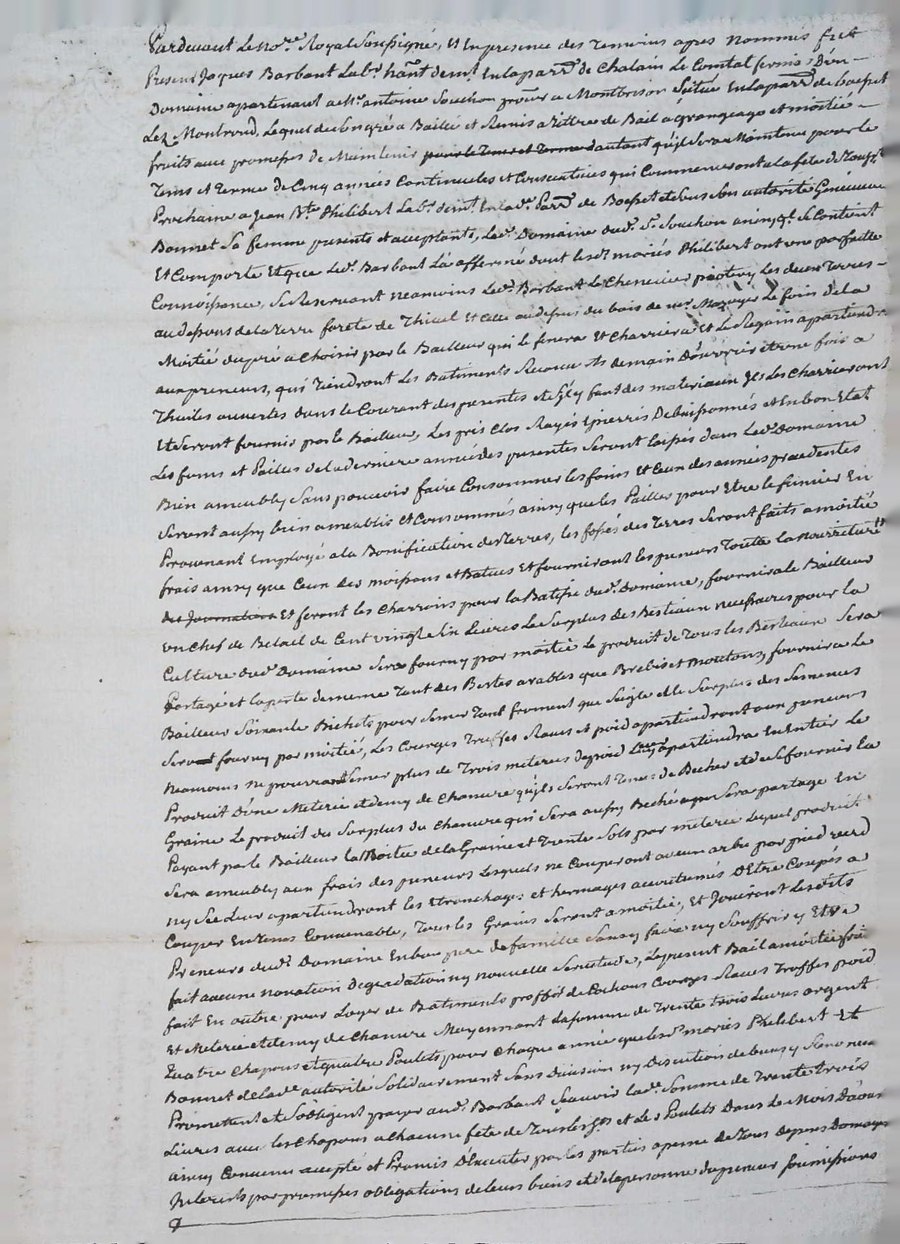 Pardevant Le no.re Royal Soussigné, et En presence des temoins apres Nommés fut
Present Jaques Barbant Lab.r hãnt demt. En la parr. de Chalain Le Comtal fermier D'un
Domaine apartenant a Mr. antoine Souchon proc.r a Montbrison Scitué En la parr. de boisset
Lez Montrond, Lequel de Son gré a Baillé et Remis a tittre de Bail a grangeage et moitié
fruits avec promesses de Maintenir pour le tems et terme autant qu'il Sera Maintenu pour le
tems et terme de Cinq années Continuelles et Consecutives qui Commenceront a la fete de
Prochaine a Jean Bte. Philibert Lab.r demt. En lad. Parr. de Boisset et de Son autorité
Bonnet Sa femme presents et acceptants, Led. Domaine dud. Sr. Souchon ainsy ql. Se Contient
Et Comporte Et que Led. Barbant L'a affermé dont lesd. mariés Philibert ont une parfaitte
Connoissance, Se Reservant neamoins Led. Barbant Le Chenevier Les deux terres
au dessous de la terre forete de Thiael et Celle au dessus du bois de Le foin de la
Moitié du pré a Choisir par le Bailleur qui le fenera Et Charriera Et Le Regain apartiendra
aux preneurs, qui tiendront Les Batiments Recouverts demain D'ouvrier et une fois a
Thuiles ouvertes dans le Courant des presentes et S'il y faut des materiaux Ils Les Charrieront
Et Seront fournis par le Bailleur, Les prés Clos Rayés Epierris Debuissonnés et En bon Etat
Les foins et Pailles de la derniere année des presentes Seront laissés dans Led. Domaine
Bien ameublis Sans pouvoir faire Consommer les foins Et Ceux des années precedentes
Seront aussy bien ameublis et Consommés ainsy que les Pailles pour Etre le fumier En
Provenant Employé a la Bonification des terres, les fossés des terres Seront faits a moitié
frais ainsy que Ceux des moissons et Batues Et fourniront les preneurs toutte la nourriture
Et feront les Charrois pour la Batisse dud. Domaine, fournira le Bailleur
un Chef de Betail de Cent vingt Six Livres Le Surplus des Bestiaux necessaires pour la
Culture dud. Domaine Sera fourny par moitié Le produit de tous les Bestiaux Sera
Partagé et la perte de meme tant des Bestes arables que Brebis et Moutons, fournira le
Bailleur Soixante Bichets pour Semer tant froment que Seigle et le Surplus des Semences
Seront fourny par moitié, Les Courges truffes Raves et poid apartiendront aux preneurs
Neamoins ne pourront Semer plus de trois meterées de poid apartiendra En Entier Le
Produit d'une Meterée et demy de Chanvre qu'ils Seront tenus de Becher et de fournir La
Graine Le produit du Surplus du Chanvre qui Sera aussy Beché Sera partagé En
Payant par le Bailleur la Moitié de la Graine et trente Sols par meterée Lequel produit
Sera ameubly aux frais des preneurs Lesquels ne Couperont aucun arbre par pied verd
ny Sec Leur apartiendront les Etronchages et hermages accoutumés D'Etre Coupés a
Couper En tems Convenable, Tous les Grains Seront a moitié, Et Jouiront Lesdits
Preneurs dud. Domaine En bon pere de famille Sans y faire ny Souffrir y Etre
fait aucune novation degradation ny nouvelle Servitude, Le present Bail a moitié fruit
fait En outre pour Loyer de Batiments proffit de Cochons Courges Raves Truffes poid
Et Meterée et demy de Chanvre Moyennant La Somme de Trente trois Livres argent
Quatre Chapons et quatre Poulets, pour Chaque année que lesd. mariés Philibert Et
Bonnet de lad. autorité Solidairement Sans division ny Discution de biens y Renoncent
Promettent et S'obligent payer aud. Barbant Scavoir lad. Somme de Trente trois
Livres avec les Chapons a Chacune fete de Tous les Sts et Les Poulets Dans Le Mois D'aoust
ainsy Convenu accepté et Promis D'Executer par les parties a peine de Tous Depens Domages
Interests par promesses obligations de leurs biens et de la personne du preneur Soumissions